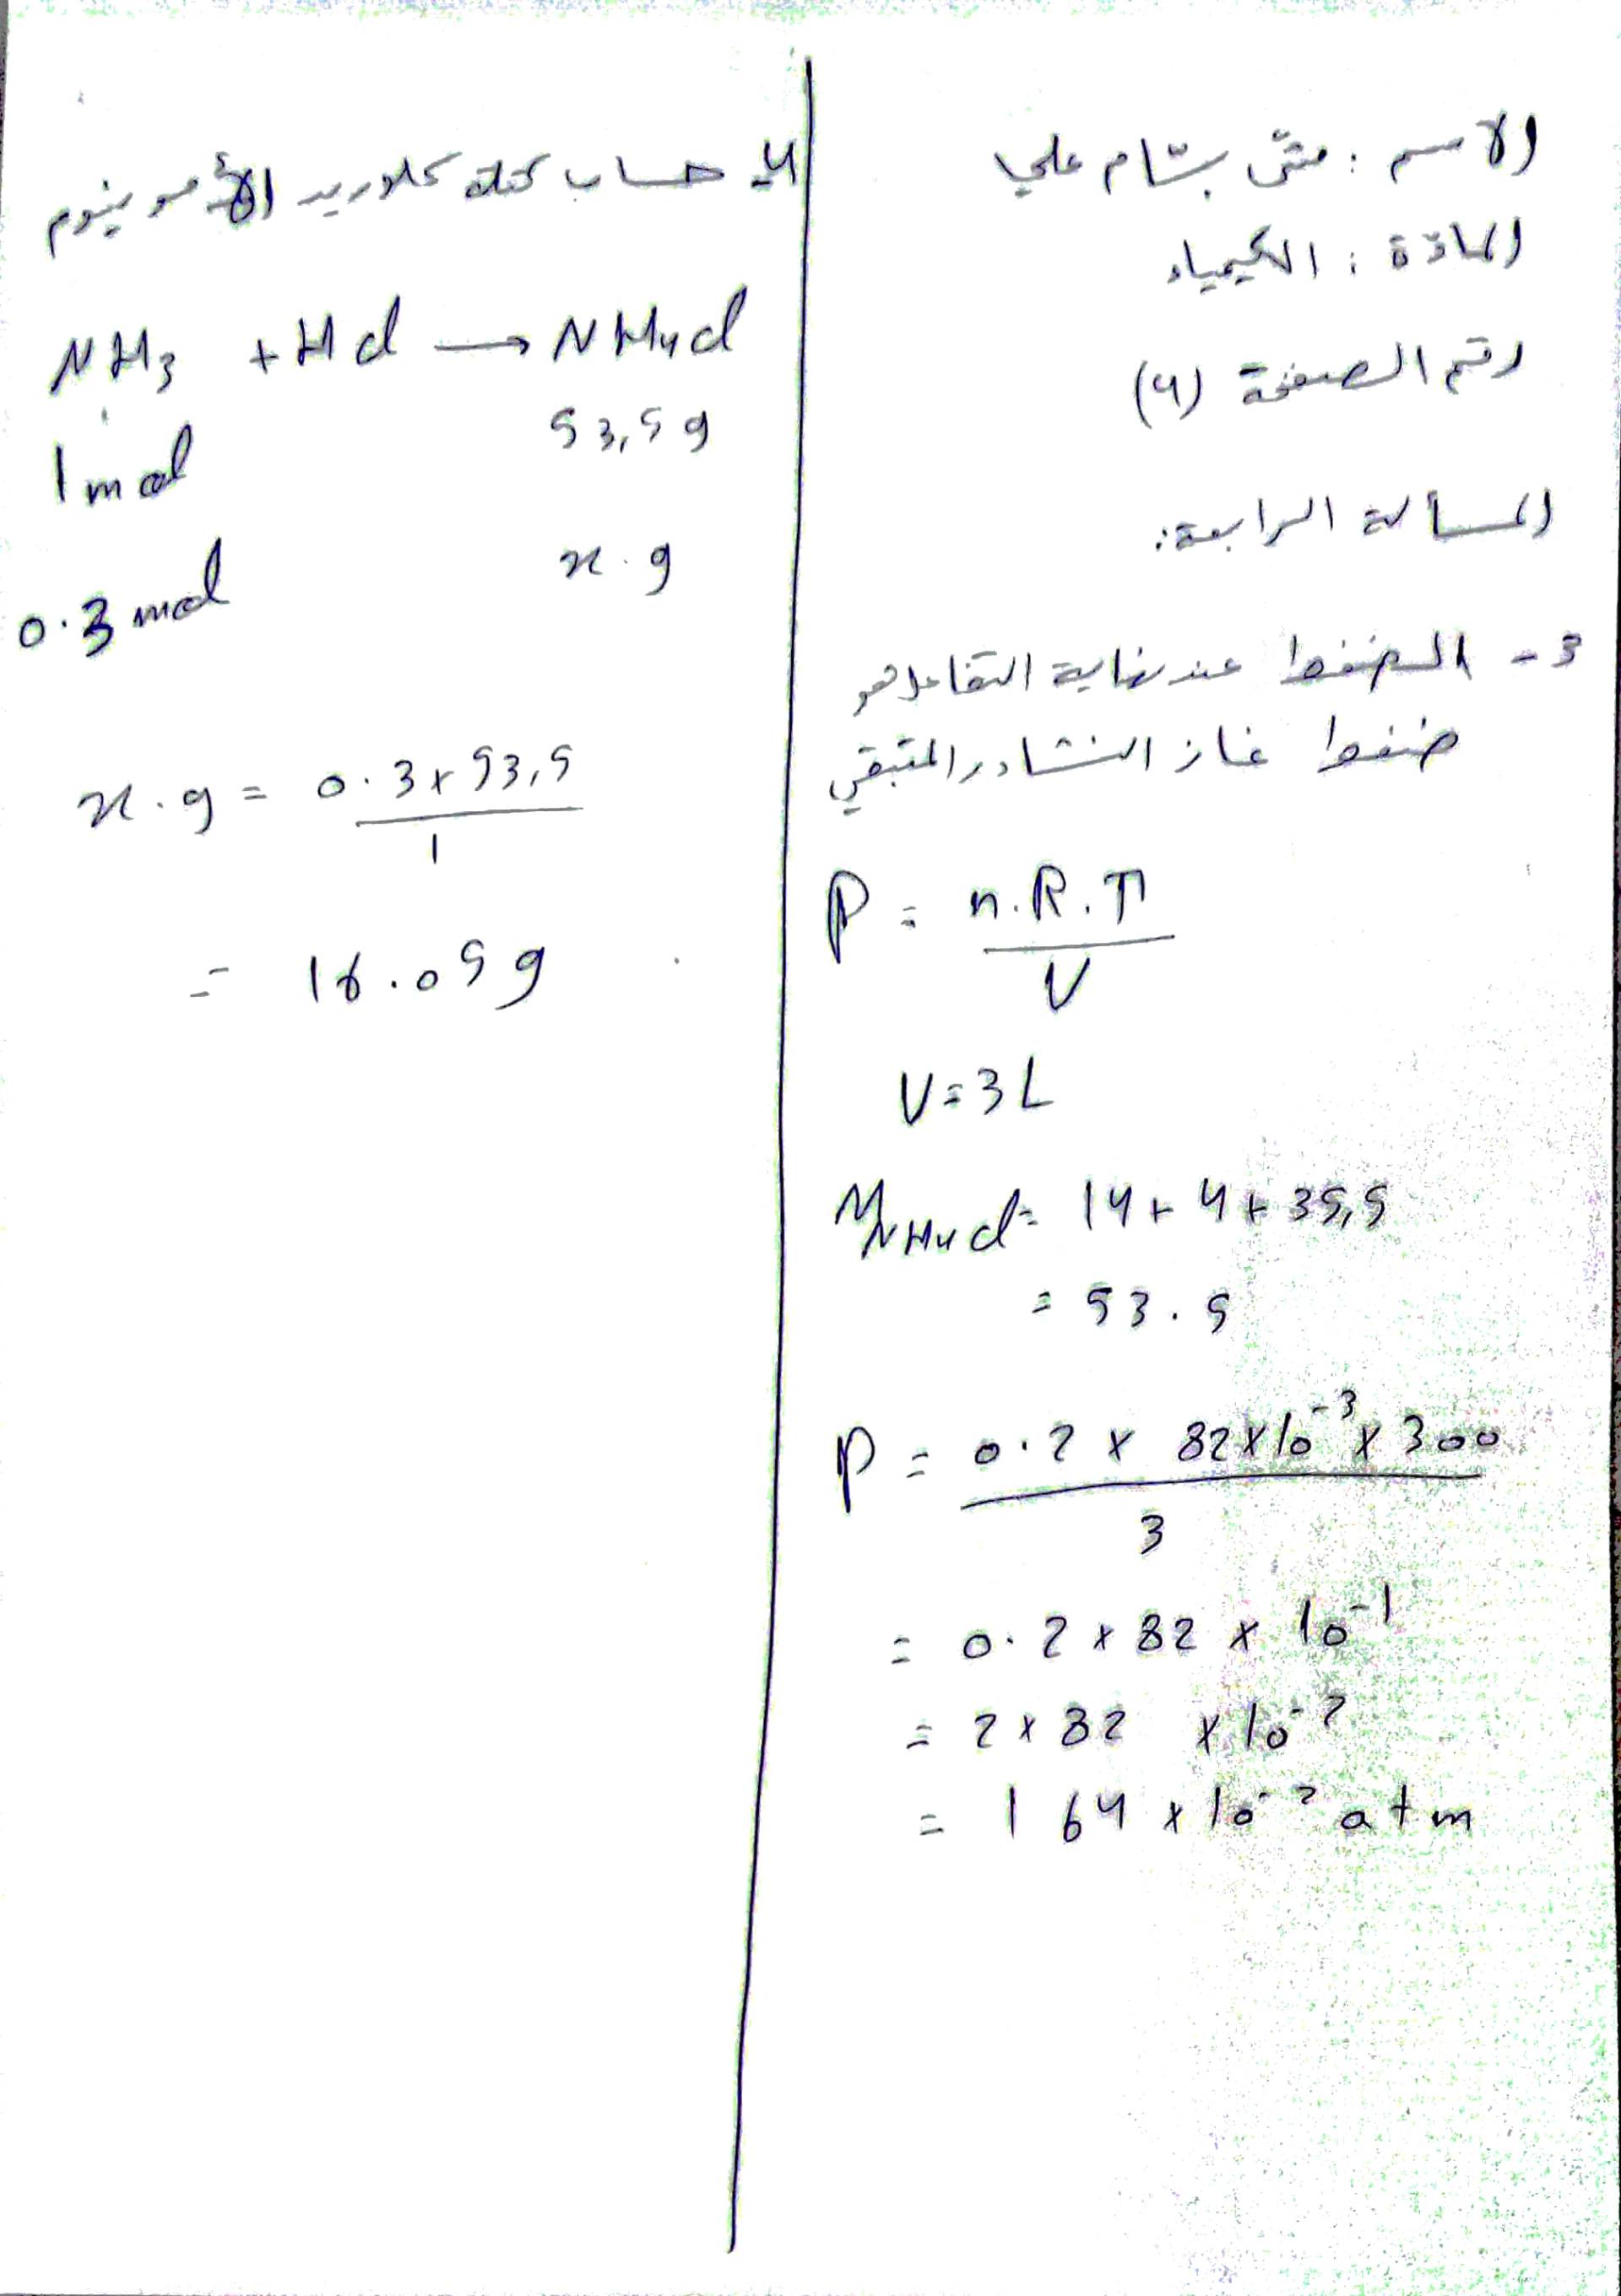 الاسم : مثنى بسّام علي
المادّة : الكيمياء
رقم الصفحة (4)
المسألة الرابعة:
3 - الضغط عند نهاية التفاعل هو
ضغط غاز النشادر المتبقي
P = n.R.T
V
V = 3 L
M NH4Cl = 14 + 4 + 35,5
= 53.5
P = 0.2 x 82 x 10^-3 x 300
3
= 0.2 x 82 x 10^-1
= 2 x 82 x 10^-2
= 164 x 10^-2 atm
4- حساب كتلة كلوريد الأمونيوم
NH3 + HCl → NH4Cl
53,5 g
1 mol
x.g
0.3 mol
x.g = 0.3 x 53,5
1
= 16.05 g